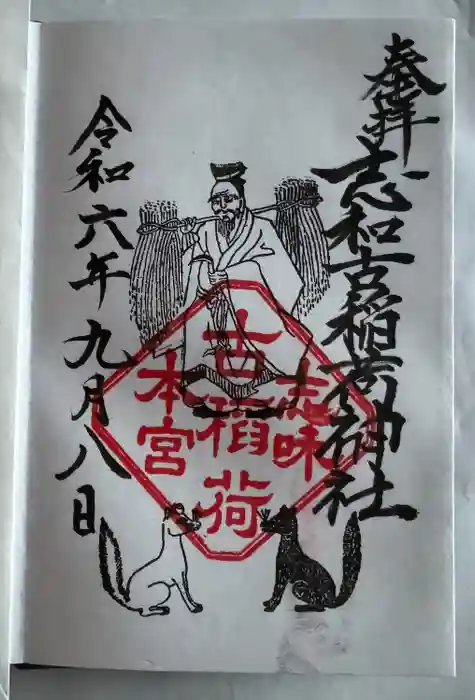 奉拝
志和古稲荷神社
古稲荷
志味
本宮
令和六年九月八日